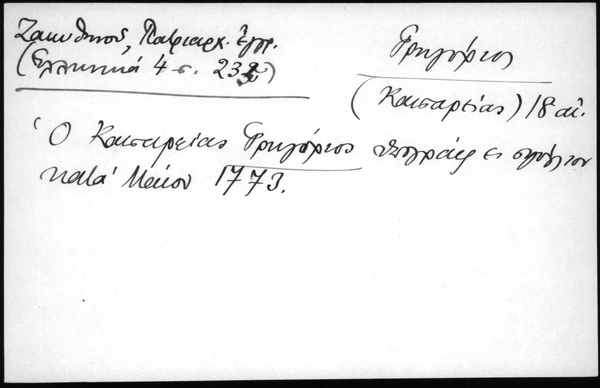 Ζακυθηνοῦ, Πατριαρχ. ἔγγρ.
(Ἑλληνικά 4 σ. 232)
Γρηγόριος
(Καισαρείας) 18 αἰ.
Ὁ Καισαρείας Γρηγόριος ὑπογράφει
κατά Μάϊον 1773.